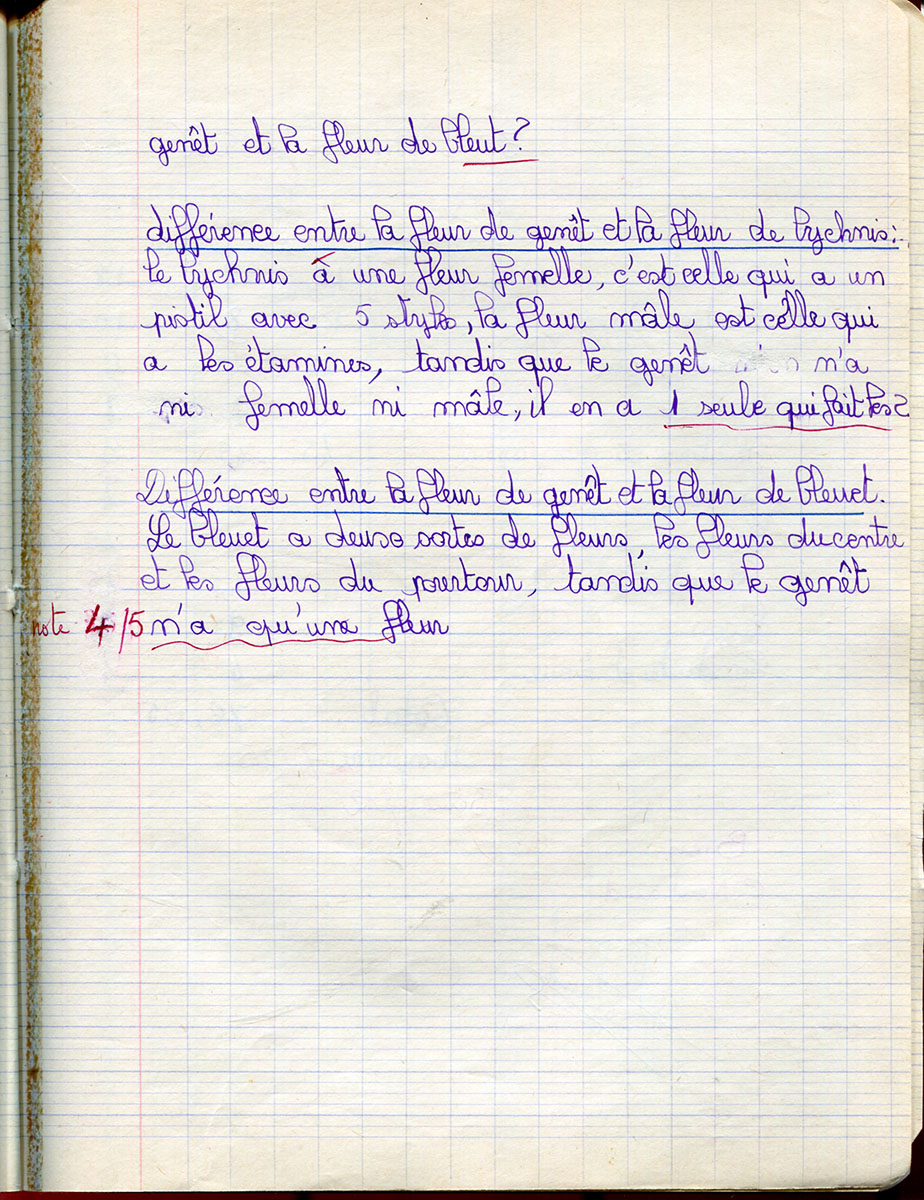 genêt et la fleur de bleut?
différence entre la fleur de genêt et la fleur de lychnis:
Le lychnis à une fleur femelle, c'est celle qui a un
pistil avec 5 styles, la fleur mâle est celle qui
a les étamines, tandis que le genêt n'a
ni femelle ni mâle, il en a 1 seule qui fait les 2
Différence entre la fleur de genêt et la fleur de bleuet.
Le bleuet a deux sortes de fleurs, les fleurs du centre
et les fleurs du pourtour, tandis que le genêt
note 4/5 n'a qu'une fleur